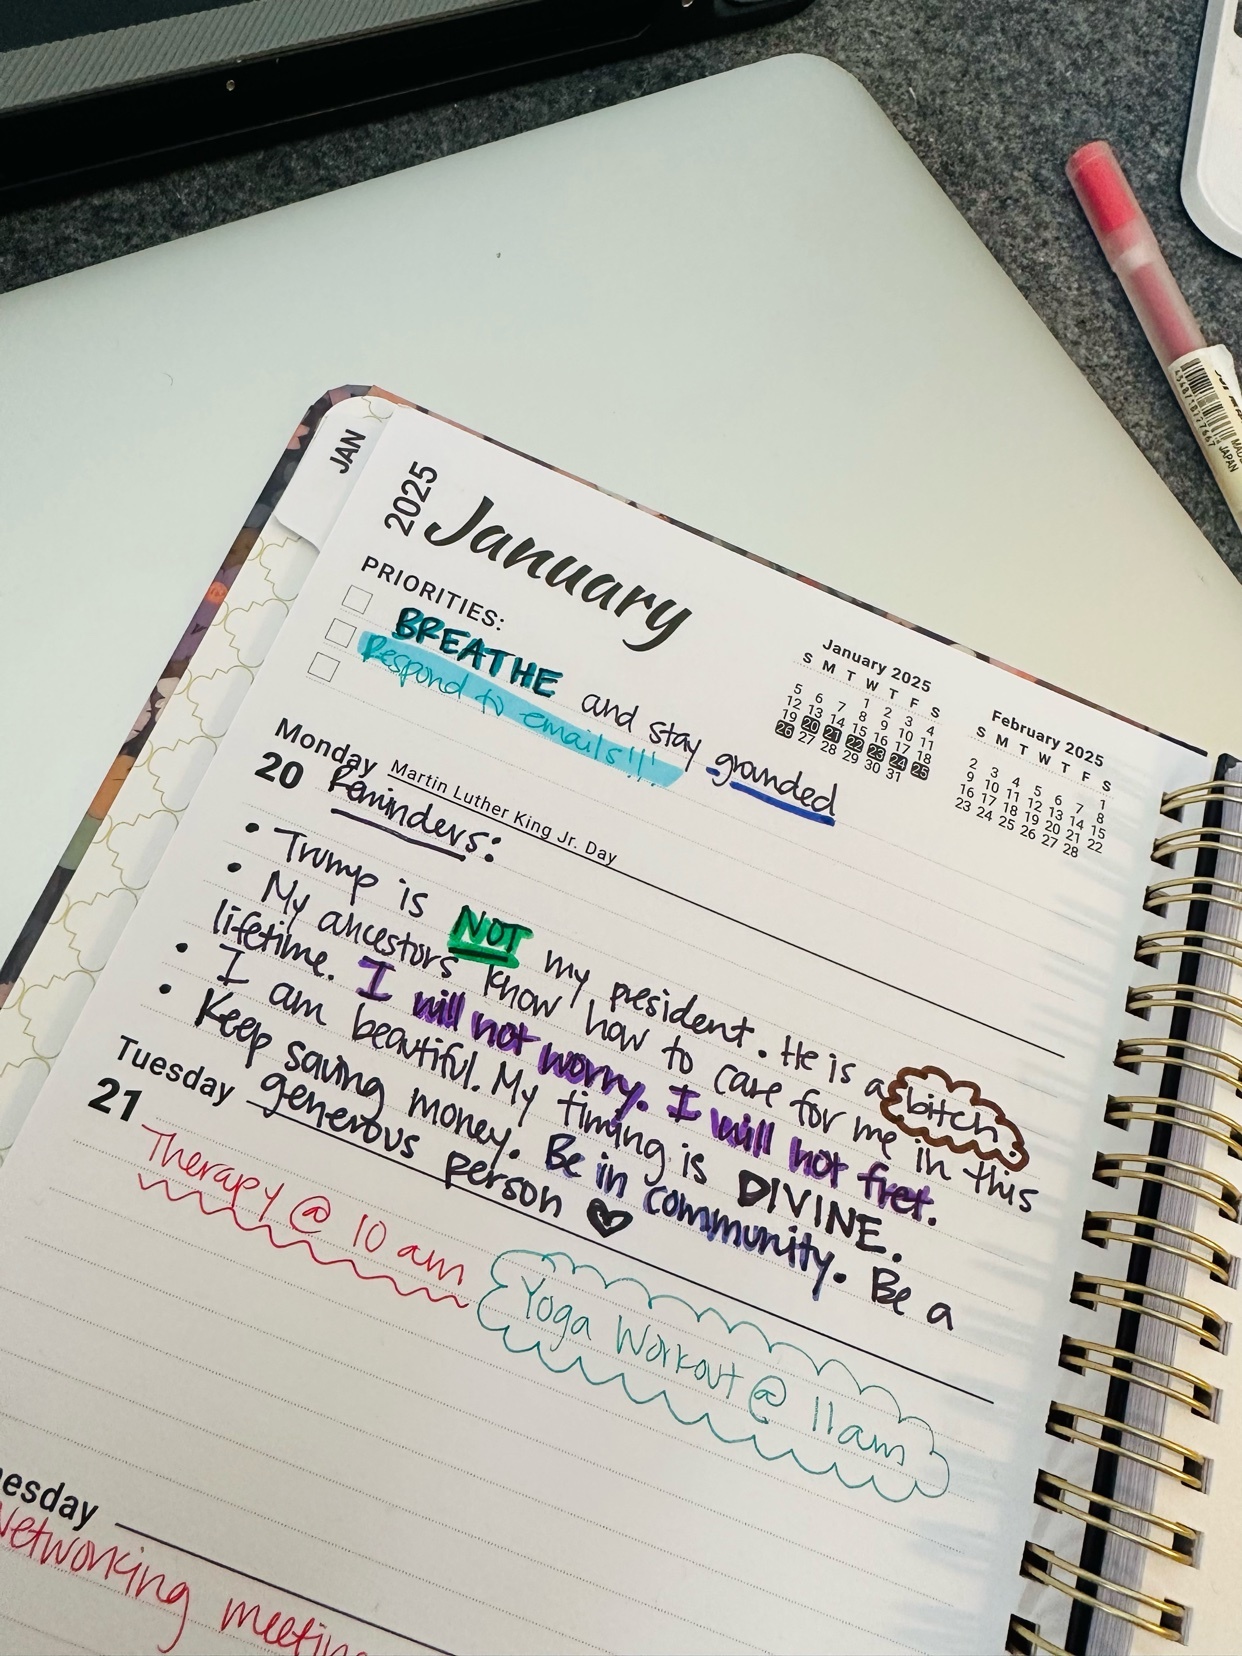 JAN
2025
January
PRIORITIES:
BREATHE and stay grounded
Respond to emails!!!
January 2025
S M T W T F S
1 2 3 4
5 6 7 8 9 10 11
12 13 14 15 16 17 18
19 20 21 22 23 24 25
26 27 28 29 30 31
February 2025
S M T W T F S
1
2 3 4 5 6 7 8
9 10 11 12 13 14 15
16 17 18 19 20 21 22
23 24 25 26 27 28
Monday Martin Luther King Jr. Day
20 Reminders:
• Trump is NOT my president. He is a bitch.
• My ancestors know how to care for me in this
lifetime. I will not worry. I will not fret.
• I am beautiful. My timing is DIVINE.
• Keep saving money. Be in community. Be a
generous person
Tuesday
21
Therapy @ 10 am
Yoga Workout @ 11am
esday
Networking meetin
JAPAN